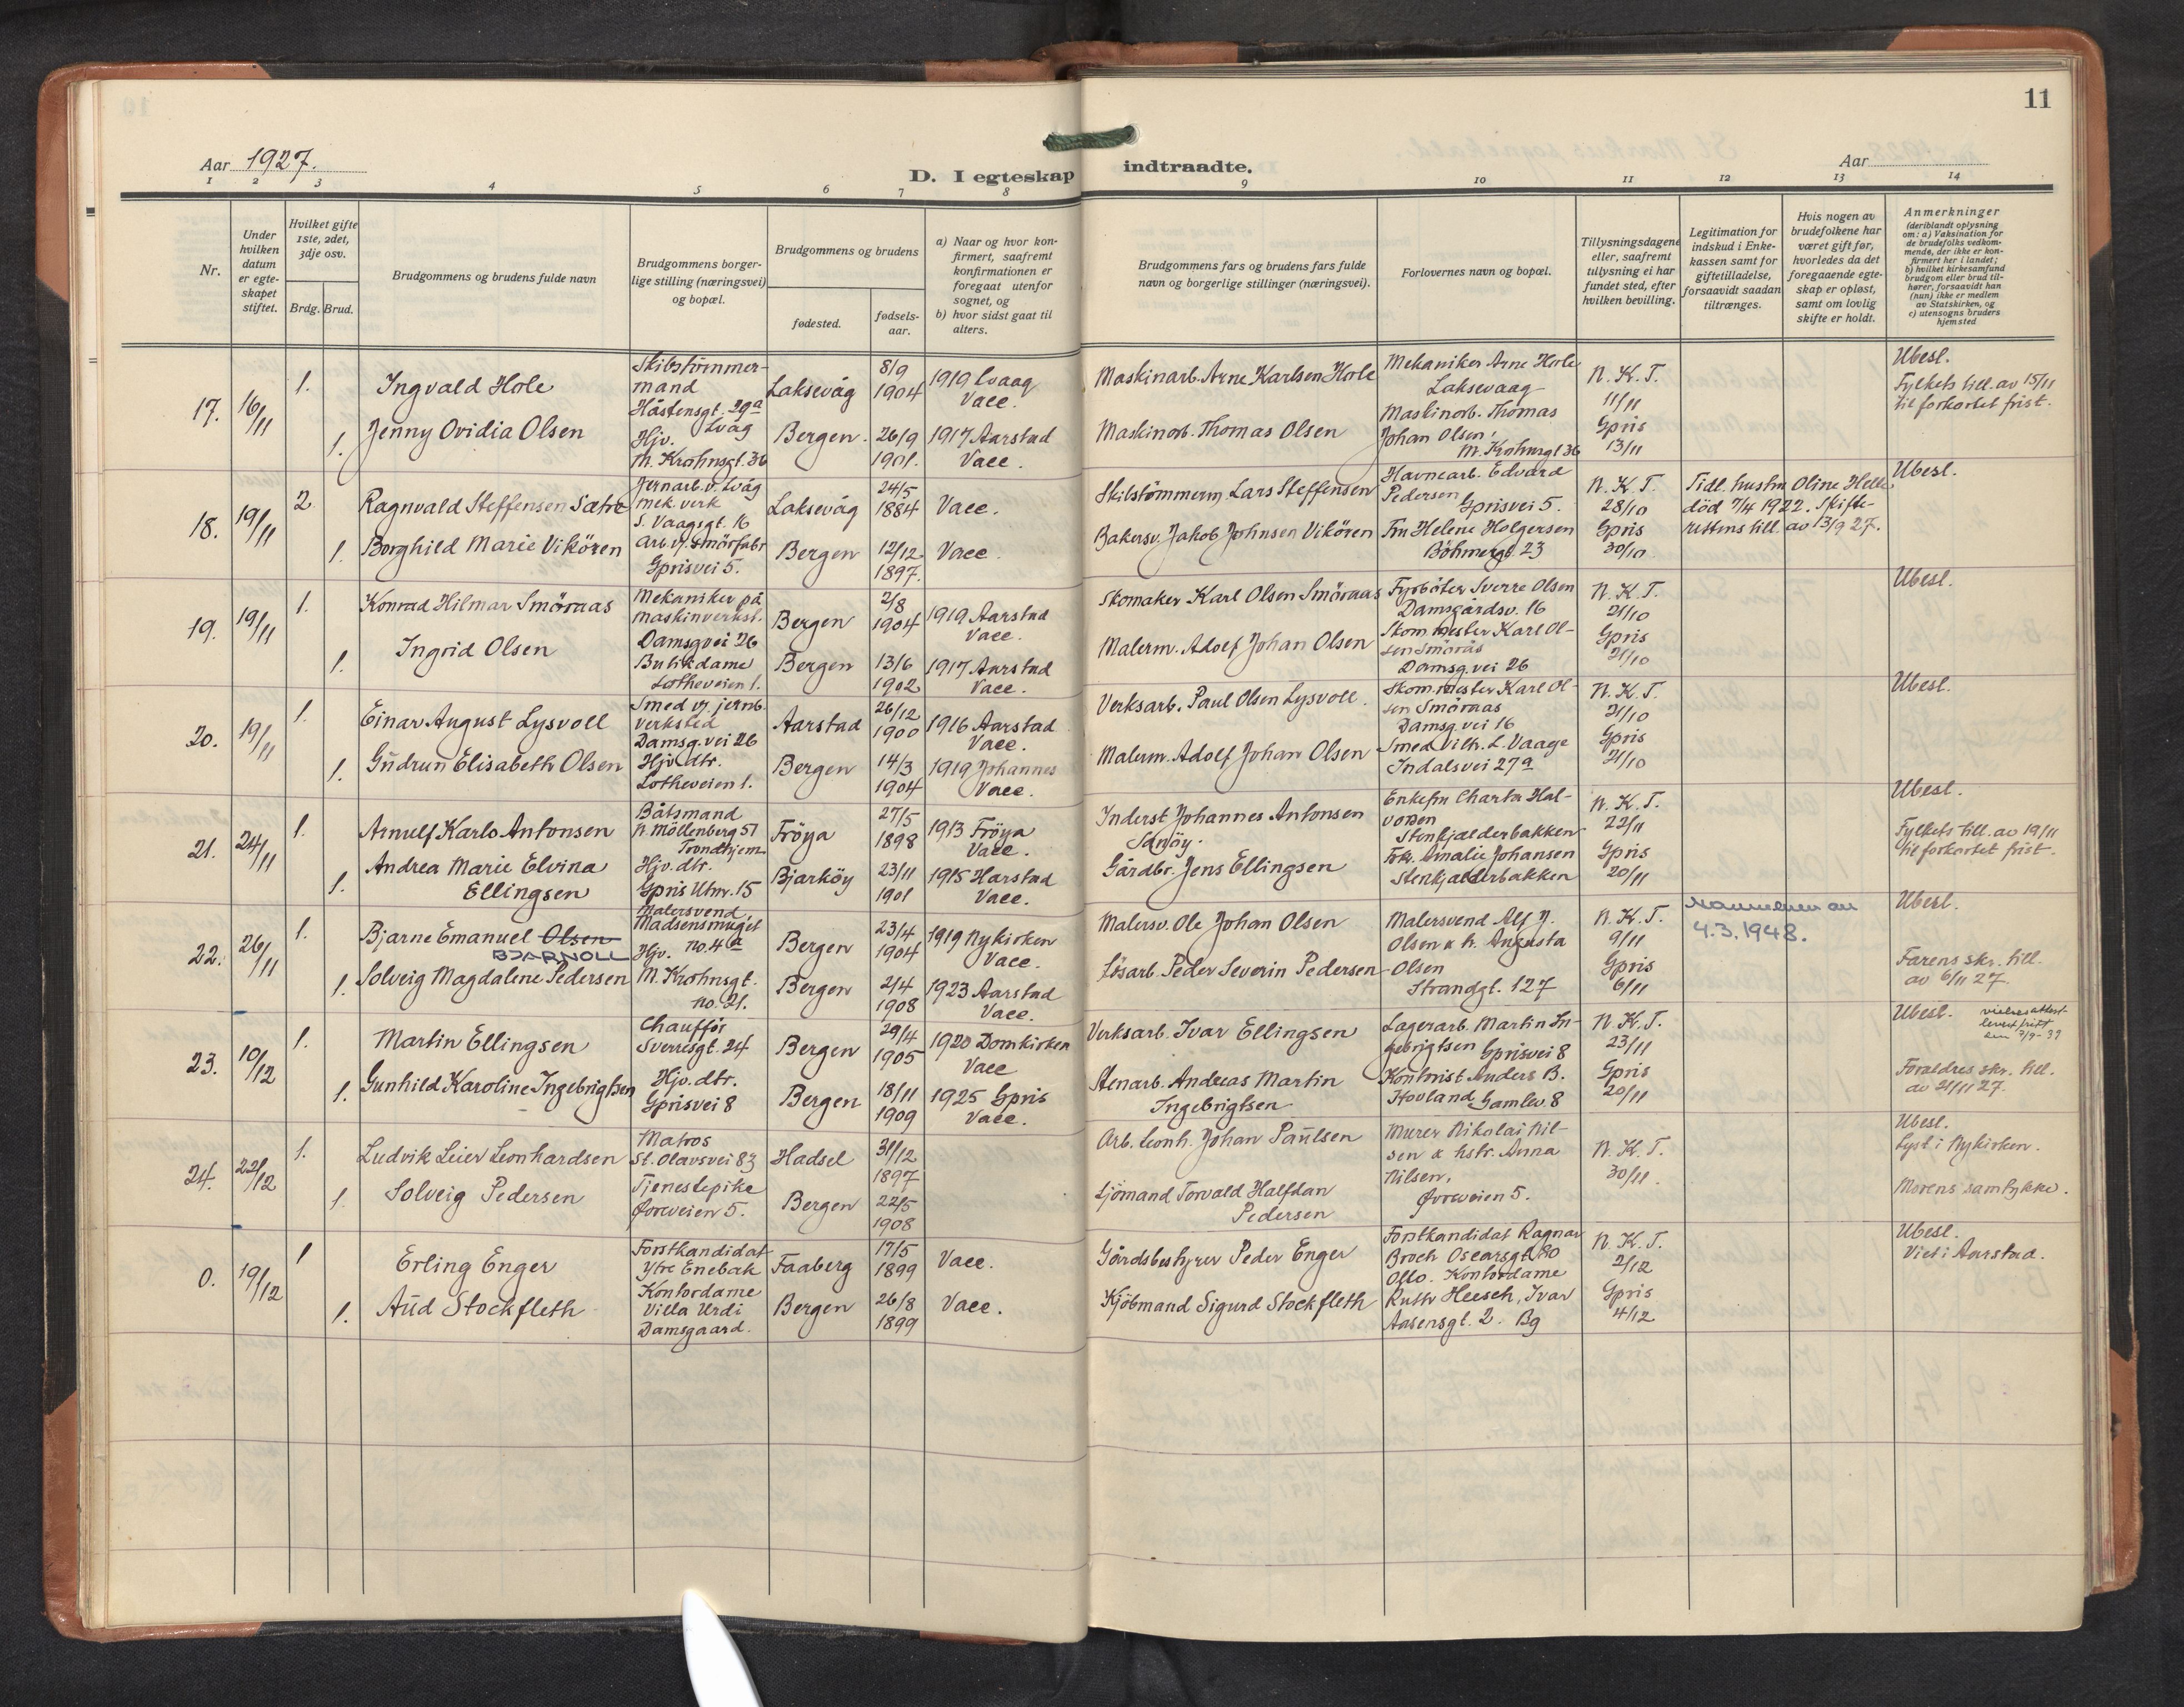 11
Aar 1927.
D. I egteskap indtraadte.
Aar
1 2 3 4 5 6 7 8 9 10 11 12 13 14
Nr.
Under hvilken datum er egteskapet stiftet.
Hvilket gifte 1ste, 2det, 3dje osv.
Brdg. Brud.
Brudgommens og brudens fulde navn
Brudgommens borgerlige stilling (næringsvei) og bopæl.
Brudgommens og brudens
fødested.
fødselsaar.
a) Naar og hvor konfirmert, saafremt konfirmationen er foregaat utenfor sognet, og
b) hvor sidst gaat til alters.
Brudgommens fars og brudens fars fulde navn og borgerlige stillinger (næringsvei).
Forlovernes navn og bopæl.
Tillysningsdagene eller, saafremt tillysning ei har fundet sted, efter hvilken bevilling.
Legitimation for indskud i Enkekassen samt for giftetilladelse, forsaavidt saadan tiltrænges.
Hvis nogen av brudefolkene har været gift før, hvorledes da det foregaaende egteskap er opløst, samt om lovlig skifte er holdt.
Anmerkninger (deriblandt oplysning om: a) Vaksination for de brudefolks vedkommende, der ikke er konfirmert her i landet; b) hvilket kirkesamfund brudgom eller brud tilhører, forsaavidt han (hun) ikke er medlem av Statskirken, og c) utensogns bruders hjemsted
17. 16/11 1. Ingvald Hole
Skibstömmermand
Håstensgt. 29a Lvåg
Laksevåg 8/9 1904 1919 Lvaag Vacc.
Maskinarb. Arne Karlsen Hole
Mekaniker Arne Hole
Laksevaag
N. K. T. 11/11
Ubesl.
Fylkets till. av 15/11
til forkortet frist.
1. Jenny Ovidia Olsen
Hjv.
M. Krohnsgt. 36
Bergen. 26/9 1901. 1917 Aarstad Vacc.
Maskinarb. Thomas Olsen
Maskinarb. Thomas
Johan Olsen,
M. Krohnsgt 36
Gpris 13/11
18. 19/11 2 Ragnvald Steffensen Sætre
Jernarb. v. Lvåg
mek. verk
S. Vaagsgt. 16
Laksevåg 24/5 1884 Vacc.
Skibstömmerm. Lars Steffensen
Havnearb. Edvard
Pedersen Gprisvei 5.
N. K. T. 28/10
Tidl. hustru Oline Helle
död 7/4 1922. Skifterettens till. av 13/9 27.
Ubesl.
1. Borghild Marie Vikören
Arb. v. smörfabr
Gprisvei 5.
Bergen 12/12 1897. Vacc.
Bakersv. Jakob Johnsen Vikören
Fru Helene Holgersen
Böhmergt. 23
Gpris 30/10
19. 19/11 1. Konrad Hilmar Smöraas
Mekaniker på
maskinverkst.
Damsgvei 26
Bergen 2/8 1904 1919 Aarstad Vacc.
Skomaker Karl Olsen Smöraas
Fyrböter Sverre Olsen
Damsgårdsv. 16
N. K. T. 21/10
Ubesl.
1. Ingrid Olsen
Butikdame
Lötheveien 1.
Bergen 13/6 1902 1917 Aarstad Vacc.
Malerm. Adolf Johan Olsen
Skom.mester Karl Olsen Smörås
Damsg.vei 26
Gpris 21/10
20. 19/11 1. Einar August Lysvoll
Smed v. jernb.
verksted
Damsg.vei 26
Aarstad 26/12 1900 1916 Aarstad Vacc.
Verksarb. Paul Olsen Lysvoll.
Skom.mester Karl Olsen Smöraas
Damsg.vei 16
N. K. T. 21/10
Ubesl.
1. Gudrun Elisabeth Olsen
Hjv. dtr.
Lötheveien 1.
Bergen 14/3 1904 1919 Johannes Vacc.
Malerm. Adolf Johan Olsen
Smed Vilh. L. Vaage
Indalsvei 27a
Gpris 21/10
21. 24/11 1. Arnulf Karlo Antonsen
Båtsmand
N. Möllenberg 57
Trondhjem
Fröya 27/5 1898 1913 Fröya Vacc.
Inderst Johannes Antonsen
Enkefru Charta Halvorsen
Stenkjælderbakken
N. K. T. 22/11
Ubesl.
Fylkets till. av 19/11
til forkortet frist.
1. Andrea Marie Elvina
Ellingsen
Hjv. dtr.
Gpris Utnr. 15
Bjarköy 23/11 1901 1915 Harstad Vacc.
Gårdbr. Jens Ellingsen
Frk. Amalie Johansen
Stenkjælderbakken
Gpris 20/11
22. 26/11 1. Bjarne Emanuel Olsen
BJARNOLL
Malersvend
Madsensmuget
no. 4a
Bergen 23/4 1904 1919 Nykirken Vacc.
Malersv. Ole Johan Olsen
Malersvend Alf J.
Olsen & h. Augusta
Olsen
Strandgt. 127
N. K. T. 9/11
4.3.1948.
Ubesl.
Farens skr. till.
av 6/11 27.
1. Solveig Magdalene Pedersen
Hjv.
M. Krohnsgt.
no. 21.
Bergen 2/4 1908 1923 Aarstad Vacc.
Lösarb. Peder Severin Pedersen
Gpris 6/11
23. 10/12 1. Martin Ellingsen
Chaufför
Sverresgt. 24
Bergen 29/4 1905 1920 Domkirken Vacc
Verksarb. Ivar Ellingsen
Lagerarb. Martin Ingebrigtsen Gprisvei 8
N. K. T. 23/11
Ubesl.
Foreldres skr. till.
av 21/11 27.
1. Gunhild Karoline Ingebrigtsen
Hjv. dtr.
Gprisvei 8
Bergen 18/11 1909 1925 Gpris Vacc.
Stenarb. Andreas Martin
Ingebrigtsen
Kontorist Anders B.
Hovland Gamlev. 8
Gpris 20/11
24. 22/12 1. Ludvik Leier Leonhardsen
Matros
St. Olavsvei 83
Hadsel 31/12 1897
Arb. Leonh. Johan Paulsen
Murer Nikolai Nilsen & hstr. Anna
Nilsen,
Øvreveien 5.
N. K. T. 30/11.
Ubesl.
Lyst i Nykirken.
1. Solveig Pedersen
Tjenestepike
Øvreveien 5.
Bergen 22/5 1908
Sjömand Torvald Halfdan
Pedersen
Morens samtykke.
0. 19/12 1 Erling Enger
Forstkandidat
Ytre Enebak
Faaberg 17/5 1899 Vacc.
Gårdsbestyrer Peder Enger
Forstkandidat Ragnar
Broch Oscarsgt. 80
Oslo. Kontordame
N. K. T. 2/12
Ubesl.
Viet i Aarstad.
1. Aud Stockfleth
Kontordame
Villa Urdi
Damsgaard.
Bergen 26/8 1899 Vacc.
Kjöbmand Sigurd Stockfleth
Ruth Heesch, Ivar
Aasensgt. 2. Bg
Gpris 4/12